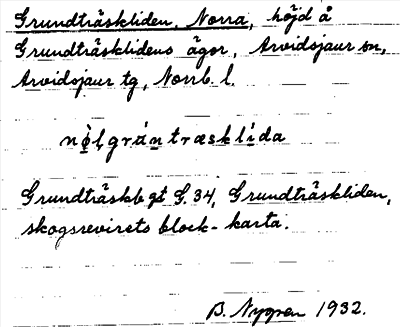 Grundträskliden, Norra, höjd å
Grundträsklidens ägor, Arvidsjaur sn,
Arvidsjaur tg, Norrb. l.
nǫ̀lgrántræsklída
Grundträskb gst G. 34, Grundträskliden,
skogsrevirets block-karta.
B. Nygren 1932.